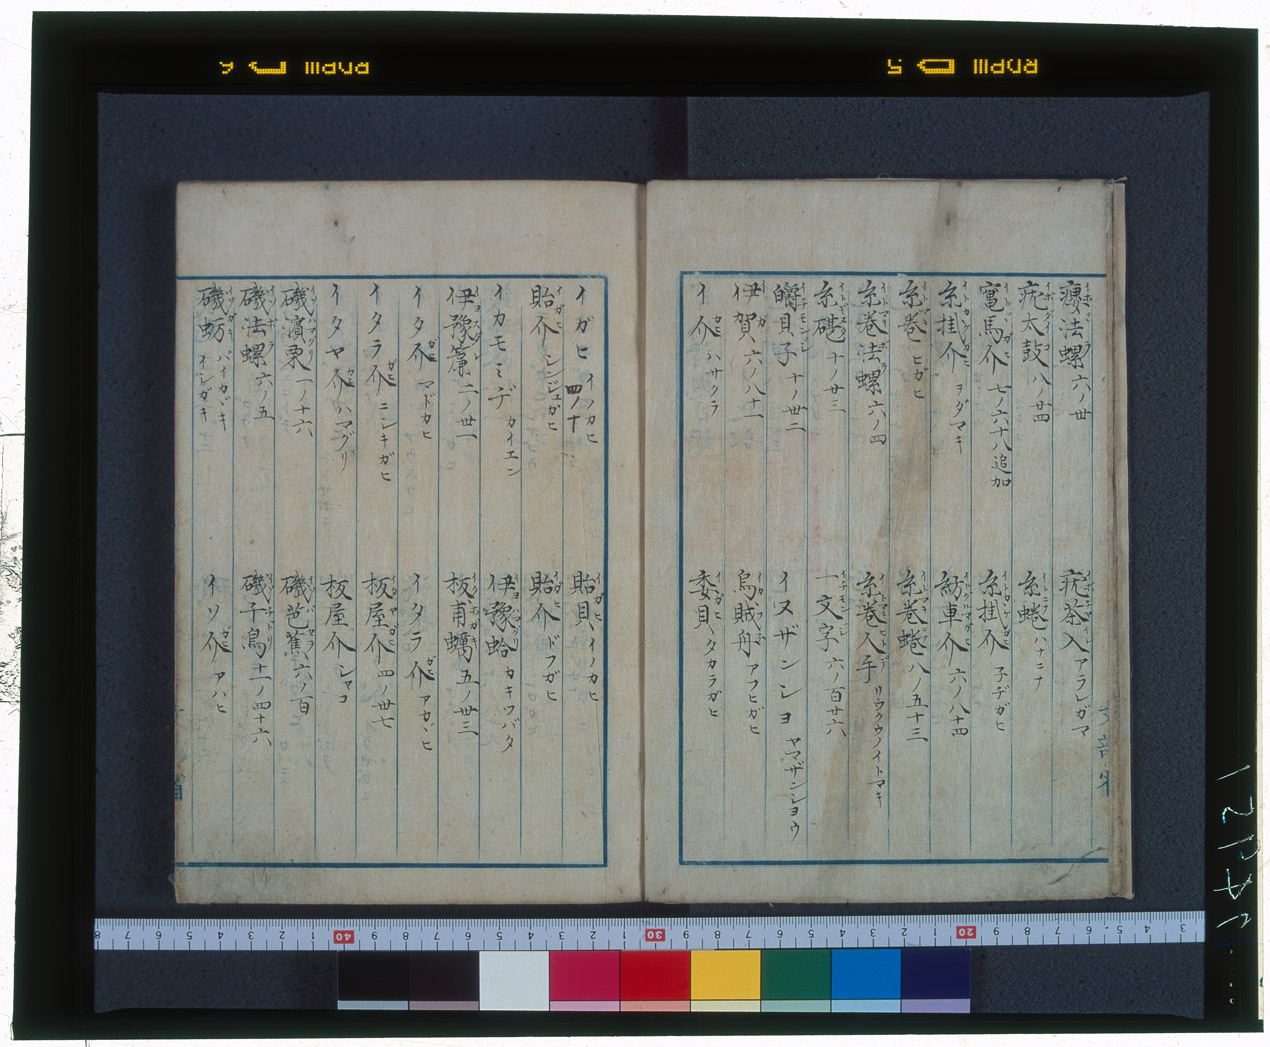 療法螺 六ノ卅
疣茶入 アラレガマ
疣太鼓 八ノ廿四
糸蜷 ハナニナ
竃馬介 七ノ六十八追加
糸掛介 子ヂガヒ
糸挂介 ヲダマキ
紡車介 六ノ八十四
糸巻 ヒガヒ
糸巻蜷 八ノ五十三
糸巻法螺 六ノ四
糸巻入手 リウクウノイトマキ
糸礎 十ノ廿三
一文字 六ノ百廿六
皭貝子 十ノ卅二
イヌザンショ ヤマザンショウ
伊賀 六ノ八十一
烏賊舟 アフヒガヒ
イ介 ハサクラ
委貝 タカラガヒ
イガヒ イノカヒ
四ノ十
貽貝 イノカヒ
貽介 シンジュガヒ
貽介 ドフガヒ
イカモミヂ カイエン
伊豫蛤 カキツバタ
伊豫簾 二ノ卅一
板甫蠣 五ノ卅三
イタ介 マドカヒ
イタラ介 アカヾヒ
イタラ介 ニシキガヒ
板屋介 四ノ卅七
イタヤ介 ハマグリ
板屋介 シヤコ
磯濱栗 一ノ十六
磯芭蕉 六ノ百
磯法螺 六ノ五
磯千鳥 十一ノ四十六
磯蛎 バイカヾキ イシガキ
イソ介 アハヒ